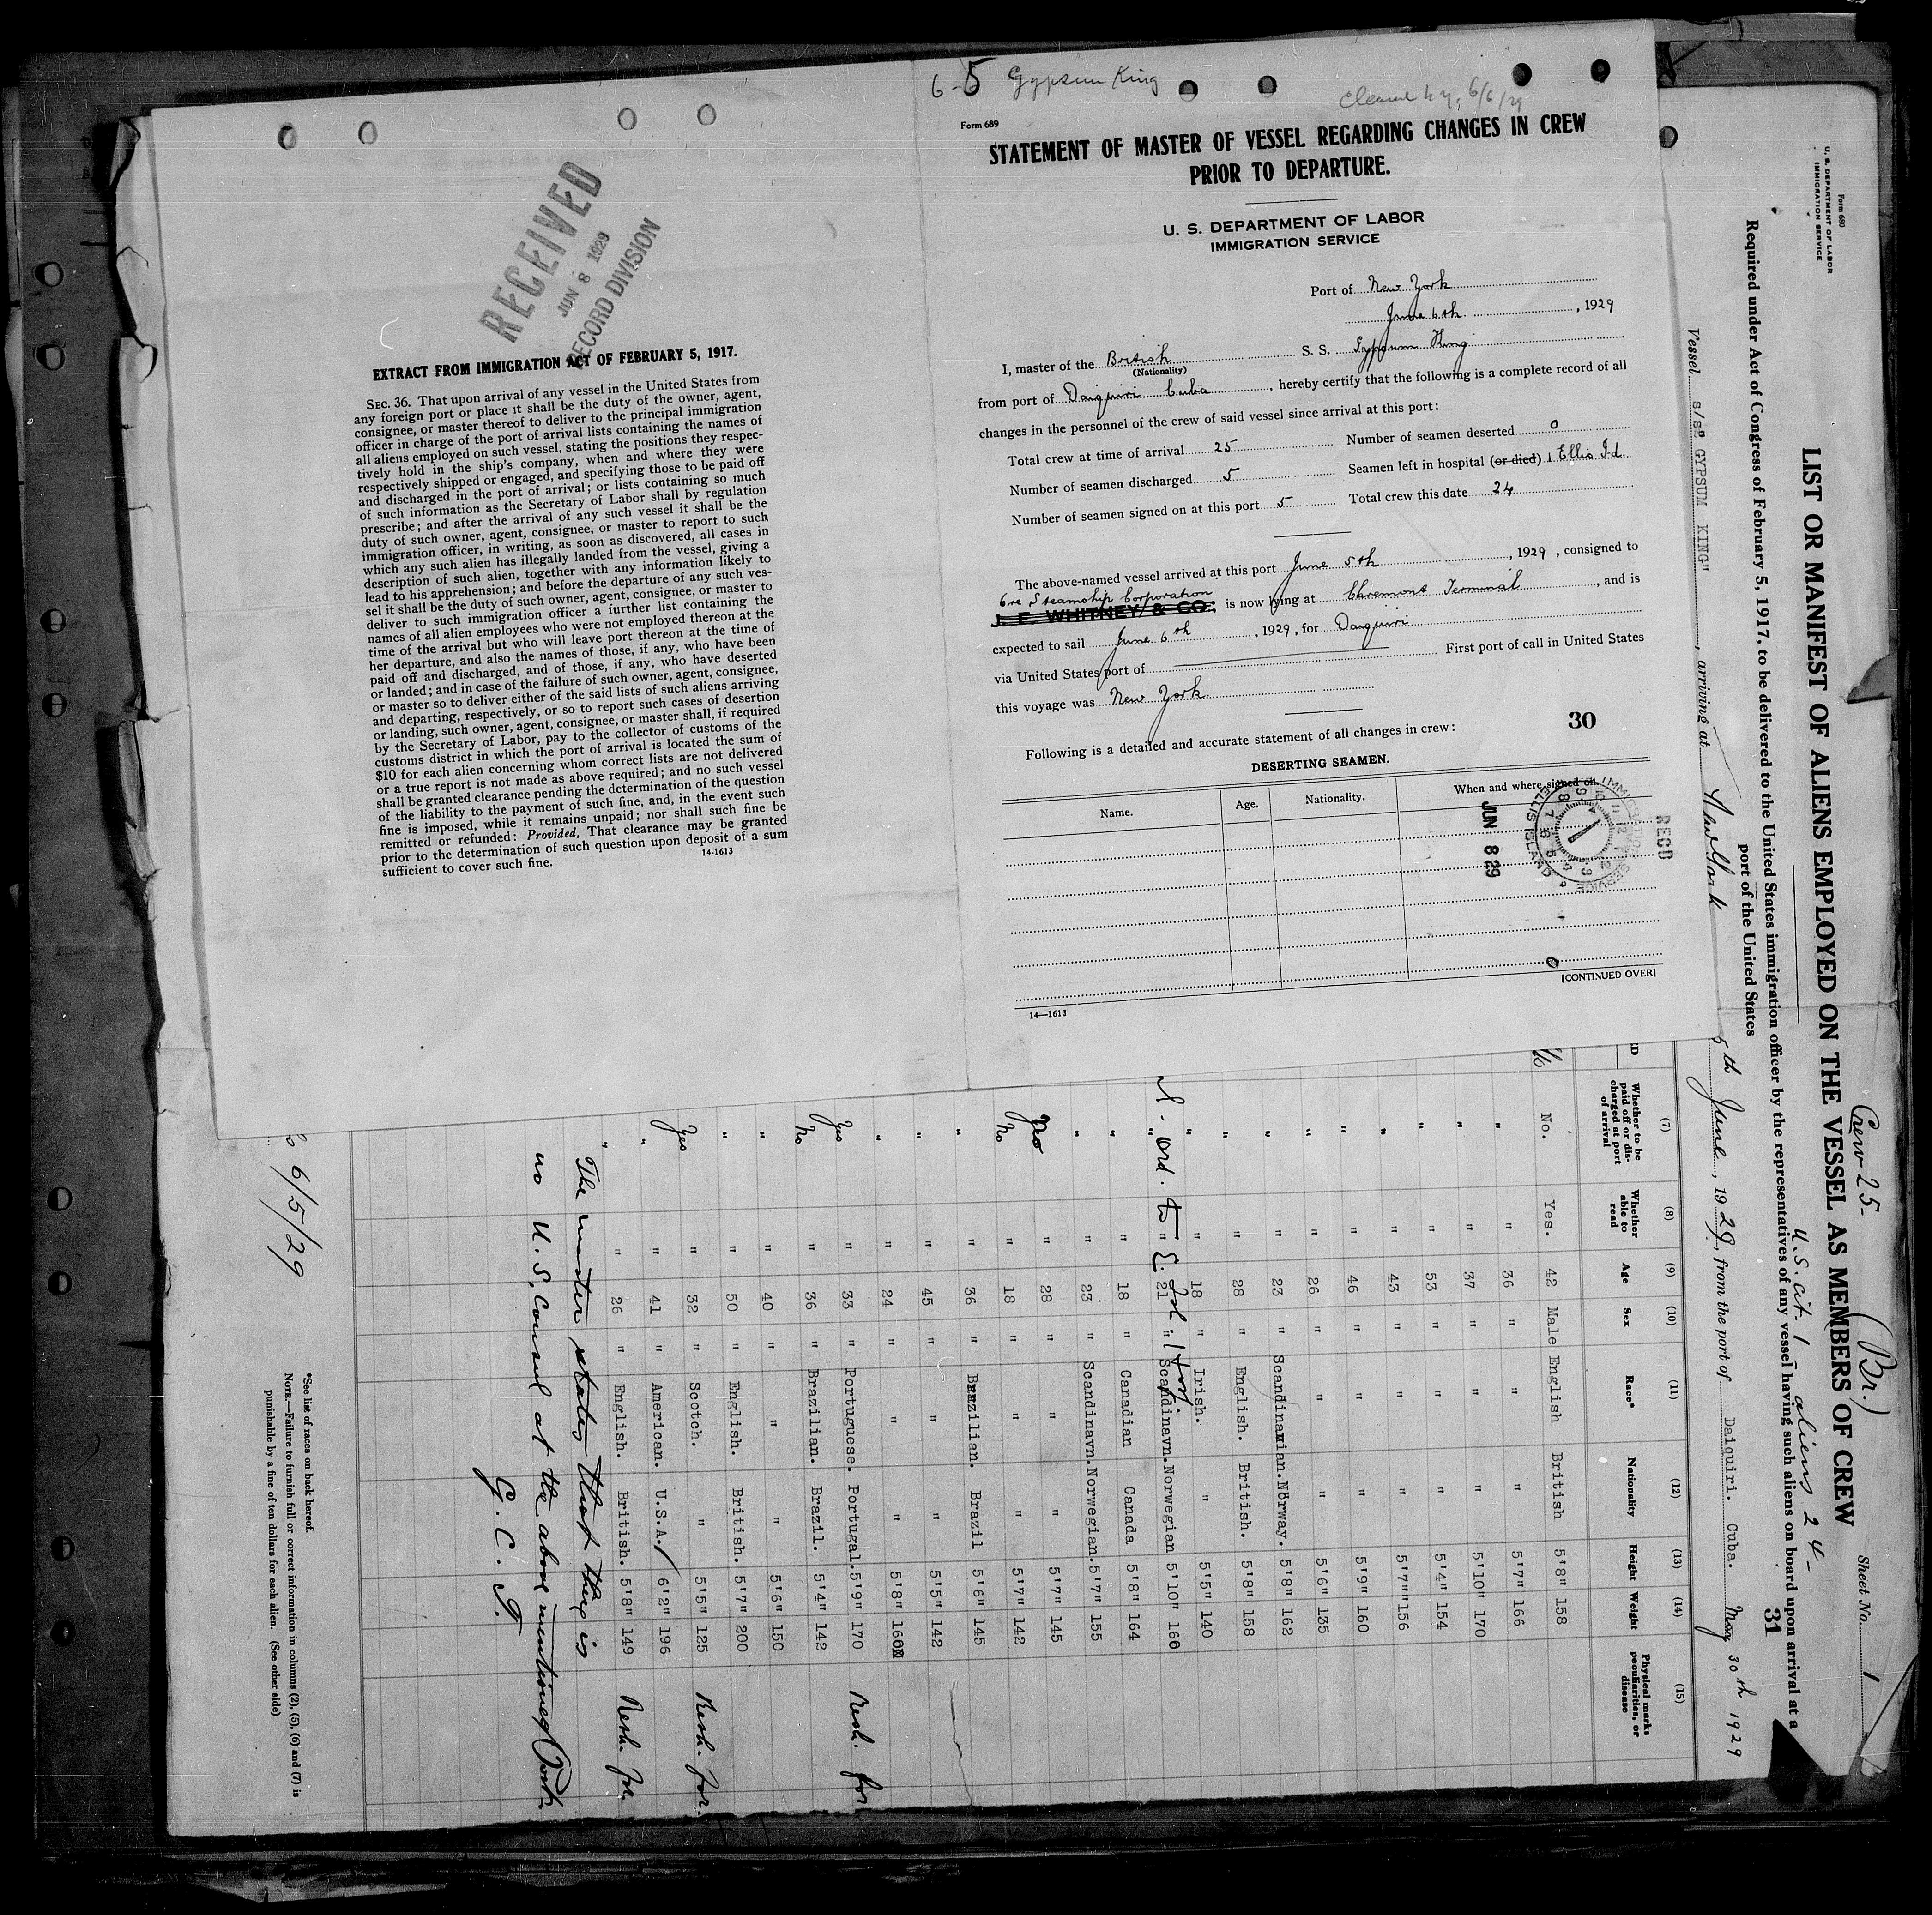 6-5 Gypsum King
Form 689
STATEMENT OF MASTER OF VESSEL REGARDING CHANGES IN CREW
PRIOR TO DEPARTURE.
U. S. DEPARTMENT OF LABOR
IMMIGRATION SERVICE
Port of New York
June 6th, 1929
I, master of the British S. S. Gypsum King
(Nationality)
from port of Daiquiri Cuba, hereby certify that the following is a complete record of all
changes in the personnel of the crew of said vessel since arrival at this port:
Total crew at time of arrival 25 Number of seamen deserted 0
Number of seamen discharged 5 Seamen left in hospital (or died) 1 Ellis Id.
Number of seamen signed on at this port 5 Total crew this date 24
The above-named vessel arrived at this port June 5th, 1929, consigned to
Ore Steamship Corporation
J. F. WHITNEY & CO., is now lying at Claremont Terminal, and is
expected to sail June 6th, 1929, for Daiquiri
via United States port of First port of call in United States
this voyage was New York
30
Following is a detailed and accurate statement of all changes in crew:
DESERTING SEAMEN.
Name. Age. Nationality. When and where signed on
RECD
JUN 8 29
IMMIGRATION SERVICE
ELLIS ISLAND
0
[CONTINUED OVER]
14—1613
RECEIVED
JUN 8 1929
RECORD DIVISION
EXTRACT FROM IMMIGRATION ACT OF FEBRUARY 5, 1917.
SEC. 36. That upon arrival of any vessel in the United States from
any foreign port or place it shall be the duty of the owner, agent,
consignee, or master thereof to deliver to the principal immigration
officer in charge of the port of arrival lists containing the names of
all aliens employed on such vessel, stating the positions they respec-
tively hold in the ship's company, when and where they were
respectively shipped or engaged, and specifying those to be paid off
and discharged in the port of arrival; or lists containing so much
of such information as the Secretary of Labor shall by regulation
prescribe; and after the arrival of any such vessel it shall be the
duty of such owner, agent, consignee, or master to report to such
immigration officer, in writing, as soon as discovered, all cases in
which any such alien has illegally landed from the vessel, giving a
description of such alien, together with any information likely to
lead to his apprehension; and before the departure of any such ves-
sel it shall be the duty of such owner, agent, consignee, or master to
deliver to such immigration officer a further list containing the
names of all alien employees who were not employed thereon at the
time of the arrival but who will leave port thereon at the time of
her departure, and also the names of those, if any, who have been
paid off and discharged, and of those, if any, who have deserted
or landed; and in case of the failure of such owner, agent, consignee,
or master so to deliver either of the said lists of such aliens arriving
and departing, respectively, or so to report such cases of desertion
or landing, such owner, agent, consignee, or master shall, if required
by the Secretary of Labor, pay to the collector of customs of the
customs district in which the port of arrival is located the sum of
$10 for each alien concerning whom correct lists are not delivered
or a true report is not made as above required; and no such vessel
shall be granted clearance pending the determination of the question
of the liability to the payment of such fine, and, in the event such
fine is imposed, while it remains unpaid; nor shall such fine be
remitted or refunded: Provided, That clearance may be granted
prior to the determination of such question upon deposit of a sum
sufficient to cover such fine.
14-1613
Form 680
U. S. DEPARTMENT OF LABOR
IMMIGRATION SERVICE
Crew 25- (Br.)
U.S. Cit. 1 aliens 24-
Sheet No. 1
LIST OR MANIFEST OF ALIENS EMPLOYED ON THE VESSEL AS MEMBERS OF CREW
31
Required under Act of Congress of February 5, 1917, to be delivered to the United States immigration officer by the representatives of any vessel having such aliens on board upon arrival at a
port of the United States
Vessel s/s" GYPSUM KING", arriving at New York 5th June, 1929, from the port of Daiquiri. Cuba. May 30th 1929
(7) (8) (9) (10) (11) (12) (13) (14) (15)
Whether to be paid off or discharged at port of arrival Whether able to read Age Sex Race* Nationality Height Weight Physical marks peculiarities, or disease
No. Yes. 42 Male English British 5'8" 158
" " 36 " " " 5'7" 166
" " 37 " " " 5'10" 170
" " 53 " " " 5'4" 154
" " 43 " " " 5'7" 156
" " 46 " " " 5'9" 160
" " 26 " " " 5'6" 135
" " 23 " Scandinavian. Norway. 5'8" 162
" " 28 " English. British. 5'8" 158
" " 18 " Irish. " 5'5" 140
ord. to E. Isl.
" " 21 " Scandinavn. Norwegian 5'10" 160
" " 18 " Canadian Canada 5'8" 164
" " 23 " Scandinavn. Norwegian. 5'7" 155
no " 28 " " " 5'7" 145
No " 18 " " " 5'7" 142
" " 36 " Brazilian. Brazil 5'6" 145
" " 45 " " " 5'5" 142
" " 24 " " " 5'8" 160
Yes " 33 " Portuguese. Portugal. 5'9" 170 Resh. for
No " 36 " Brazilian. Brazil. 5'4" 142
" " 40 " " " 5'6" 150
" " 50 " English. British. 5'7" 200
Yes " 32 " Scotch. " 5'5" 125 Resh. for.
" " 41 " American. U.S.A. 6'2" 196
" " 26 " English. British. 5'8" 149 Resh. for.
The master states that there is
no U. S. Consul at the above mentioned Port.
G. C. F.
6/5/29
*See list of races on back hereof.
NOTE.—Failure to furnish full or correct information in columns (2), (5), (6) and (7) is
punishable by a fine of ten dollars for each alien. (See other side)